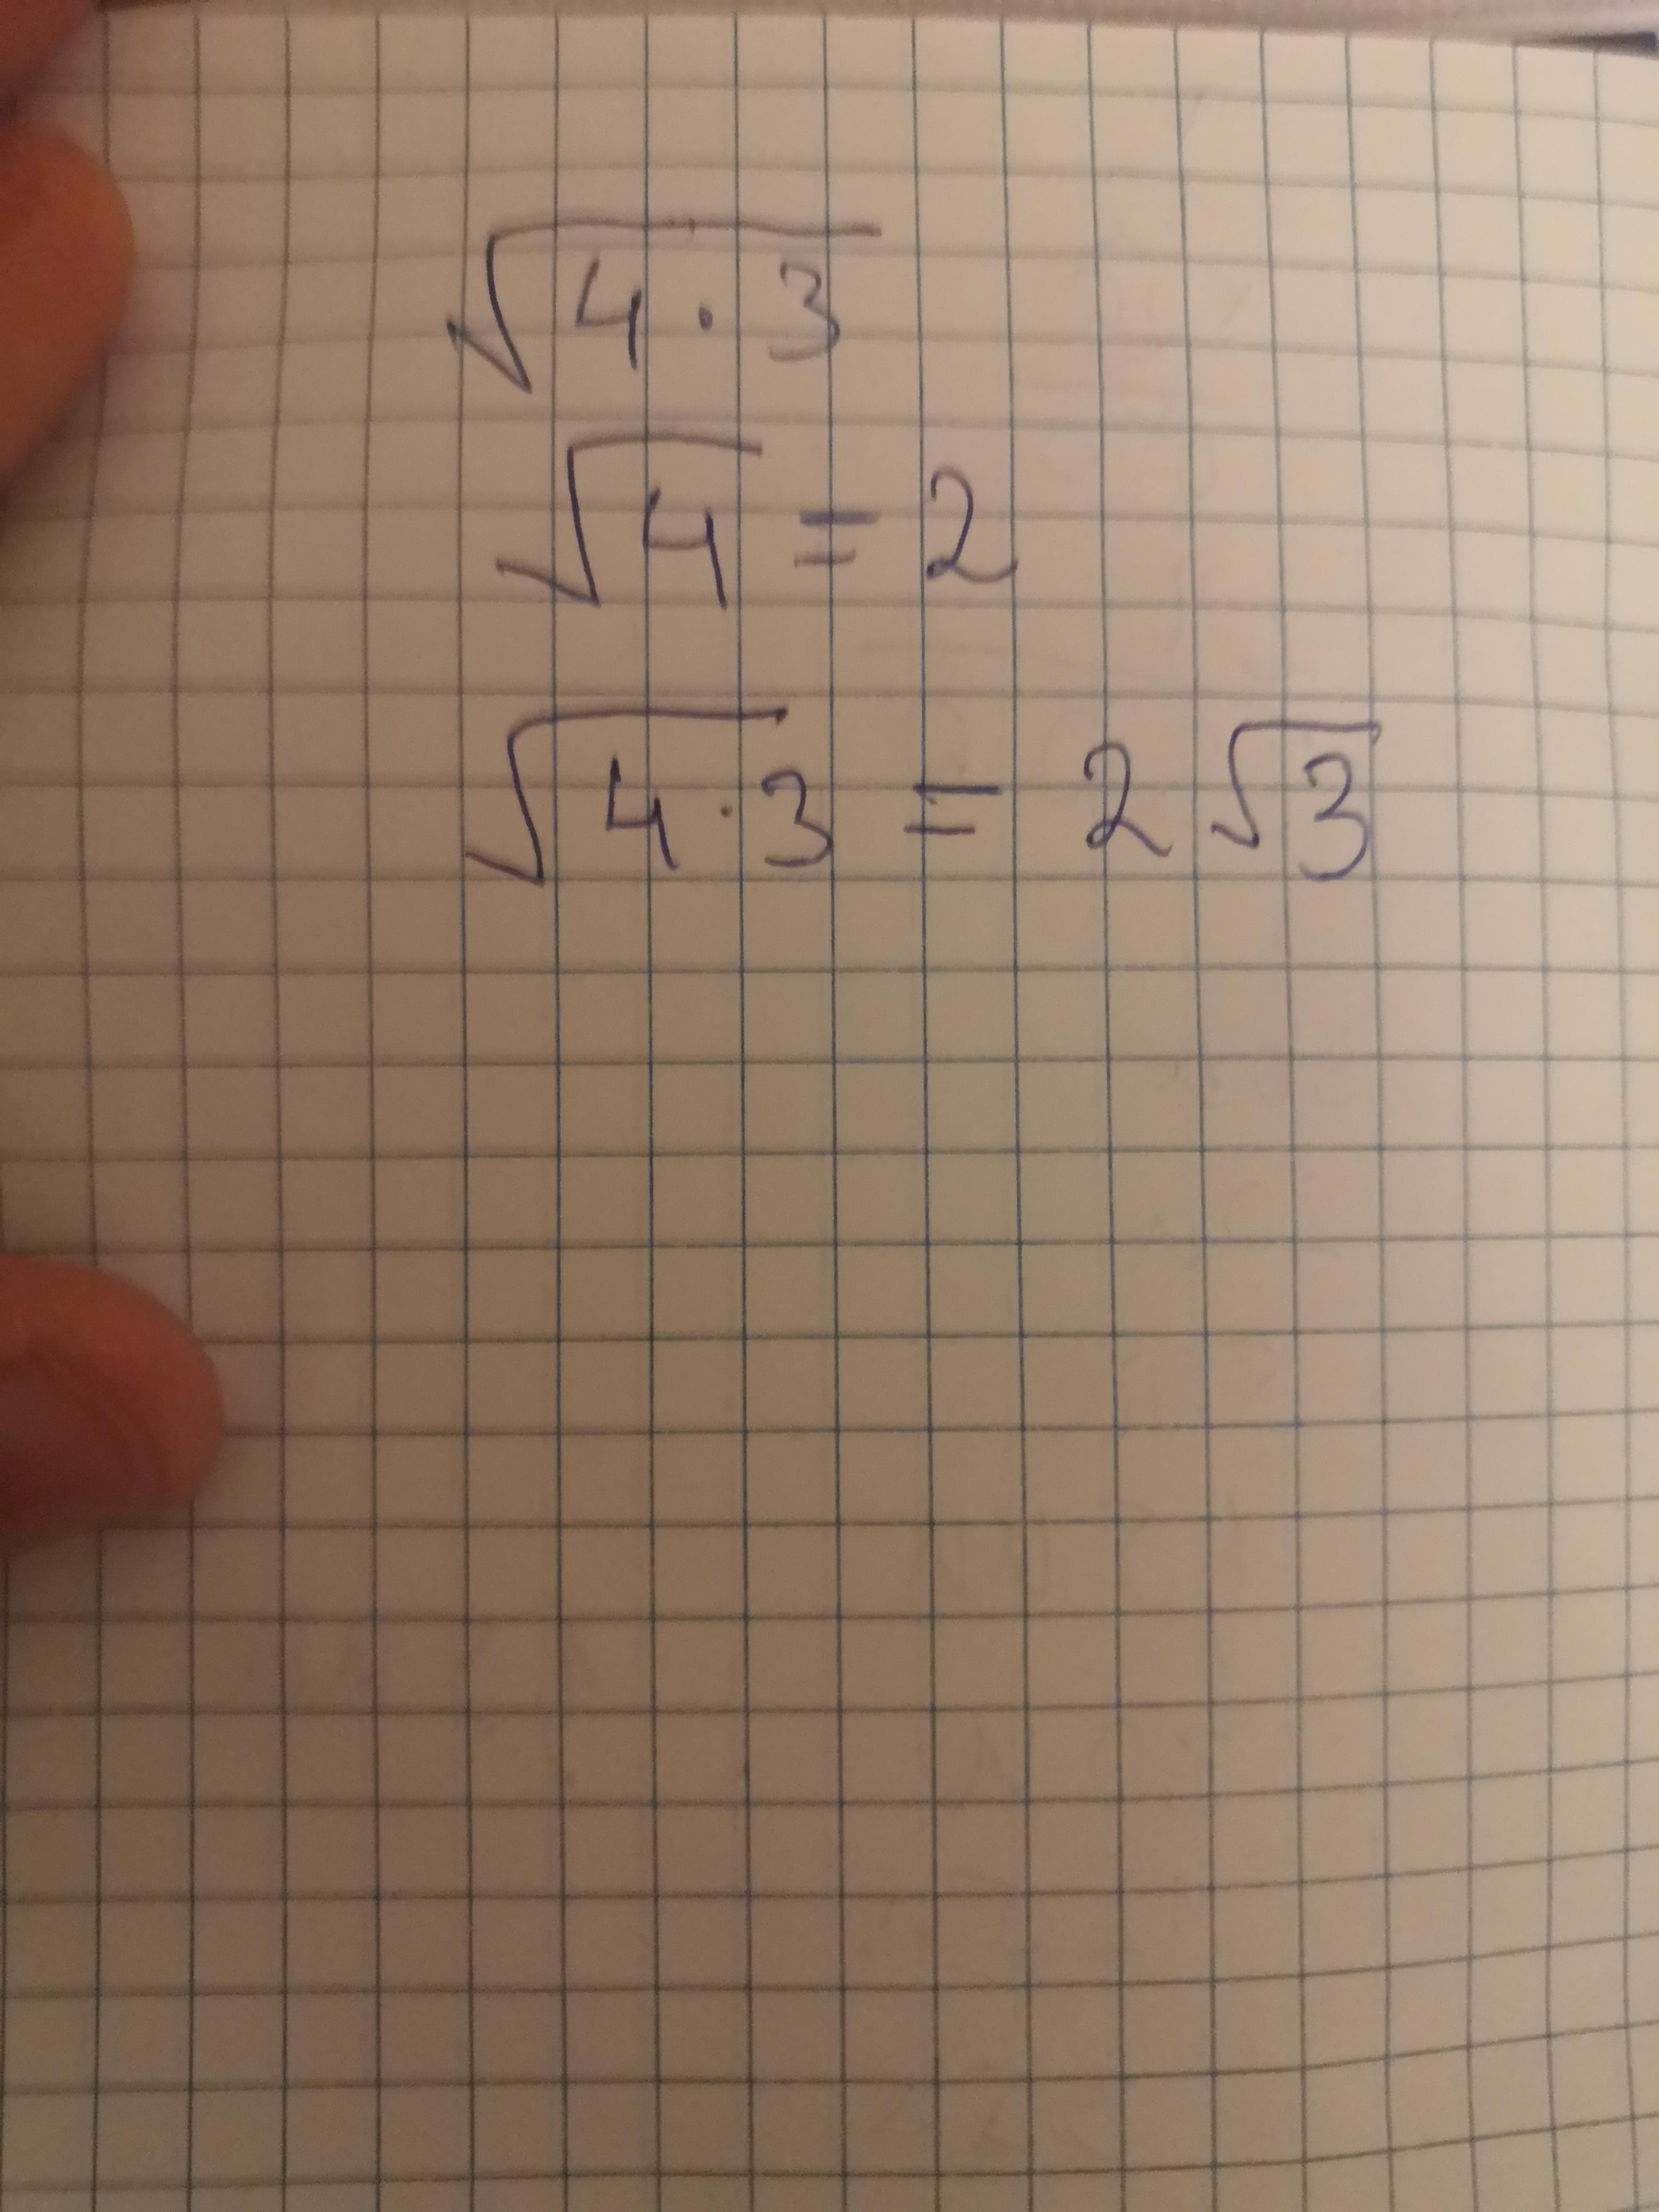 √4·3
√4 = 2
√4·3 = 2√3